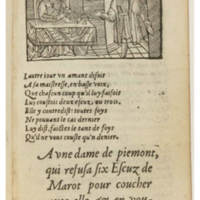 Lautre iour vn amant disoit
A sa maistresse, en basse voix,
Que chascun coup qu'il luy faisoit
Luy coustoit deux escuz, ou trois.
Elle y contredist: toutes foys
Ne pouant le cas denier
Luy dist, faictes le tant de foys
Qu'il ne vous couste qu'vn denier.
A vne dame de piemont,
qui refusa six Escuz de
Marot pour coucher
auec elle, en